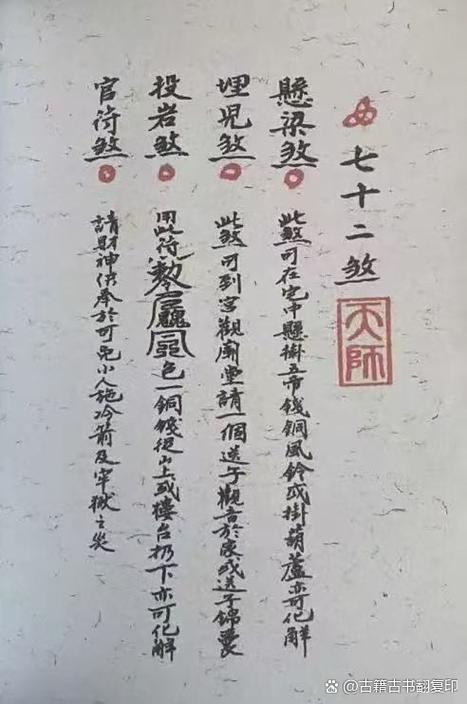 七十二煞
天師
懸梁煞
此煞可在宅中懸掛五帝錢銅風鈴或掛葫蘆亦可化解
埋児煞
此煞可到宮觀廟堂請一個送子觀音於家或送子錦囊
投岩煞
用此符包一銅錢從山上或樓台扔下亦可化解
官符煞
請財神供奉於可免小人施冷箭及牢獄之災
@古籍古书翻复印